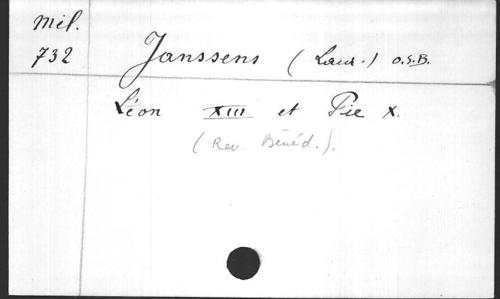 Mél.
732
Janssens (Laur.) O.S.B.
Léon XIII et Pie X.
(Rev. Bénéd.).